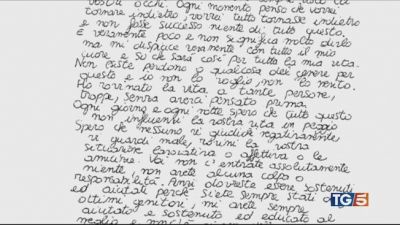 vostri occhi. Ogni momento penso che vorrei
tornare indietro, vorrei tutto tornasse indietro
e non fosse successo niente di tutto questo.
È veramente poco e non significa molto dirlo
ma mi dispiace veramente con tutto il mio
cuore e so che sarà così per tutta la mia vita.
Non esiste perdono o qualcosa del genere per
questo e io non lo voglio, non lo merito.
Ho rovinato la vita a tante persone,
troppe, senza averci pensato prima.
Ogni giorno e ogni notte spero che tutto questo
non influenzi la vostra vita in peggio
Spero che nessuno vi giudichi negativamente
vi guardi male, rovini la vostra
situazione lavorativa o affettiva o le
amicizie. Voi non c'entrate assolutamente
niente, non avete alcuna colpa o
responsabilità. Anzi dovreste essere sostenuti
ed aiutati perché siete sempre stati
ottimi genitori, mi avete sempre
aiutato e sostenuto ed educato al
meglio e
TG5